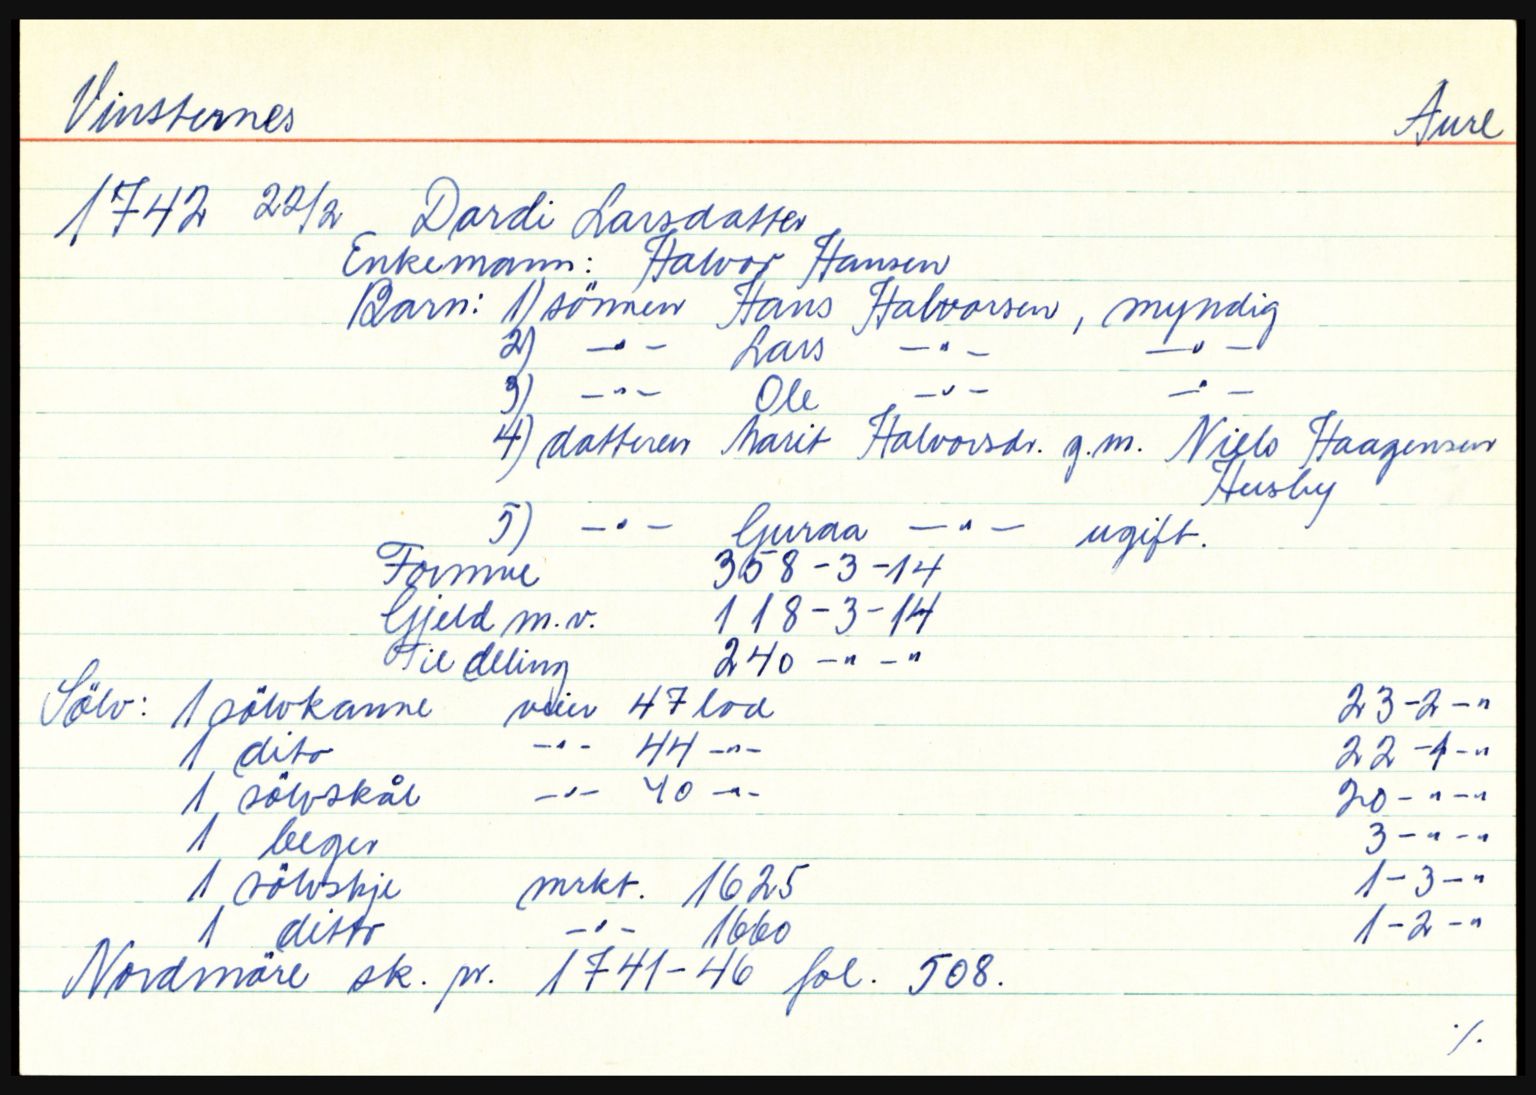 Vinsternes Aure
1742 22/2 Dordi Larsdatter
Enkemann: Halvor Hansen
Barn: 1) sönnen Hans Halvorsen, myndig
2) -"- Lars -"- -"-
3) -"- Ole -"- -"-
4) datteren Marit Halvorsdr. g.m. Niels Haagensen
Husby
5) -"- Guraa -"- ugift.
Formue 358-3-14
Gjeld m.v. 118-3-14
Til deling 240-"-"
Sölv: 1 sölvkanne veier 47 lod 23-2-"
1 dito -"- 44 -"- 22-1-"
1 sölvskål -"- 40 -"- 20-"-"
1 beger 3-"-"
1 sölvskje mrkt. 1625 1-3-"
1 ditto -"- 1660 1-2-"
Nordmöre sk. pr. 1741-46 fol. 508.
./.